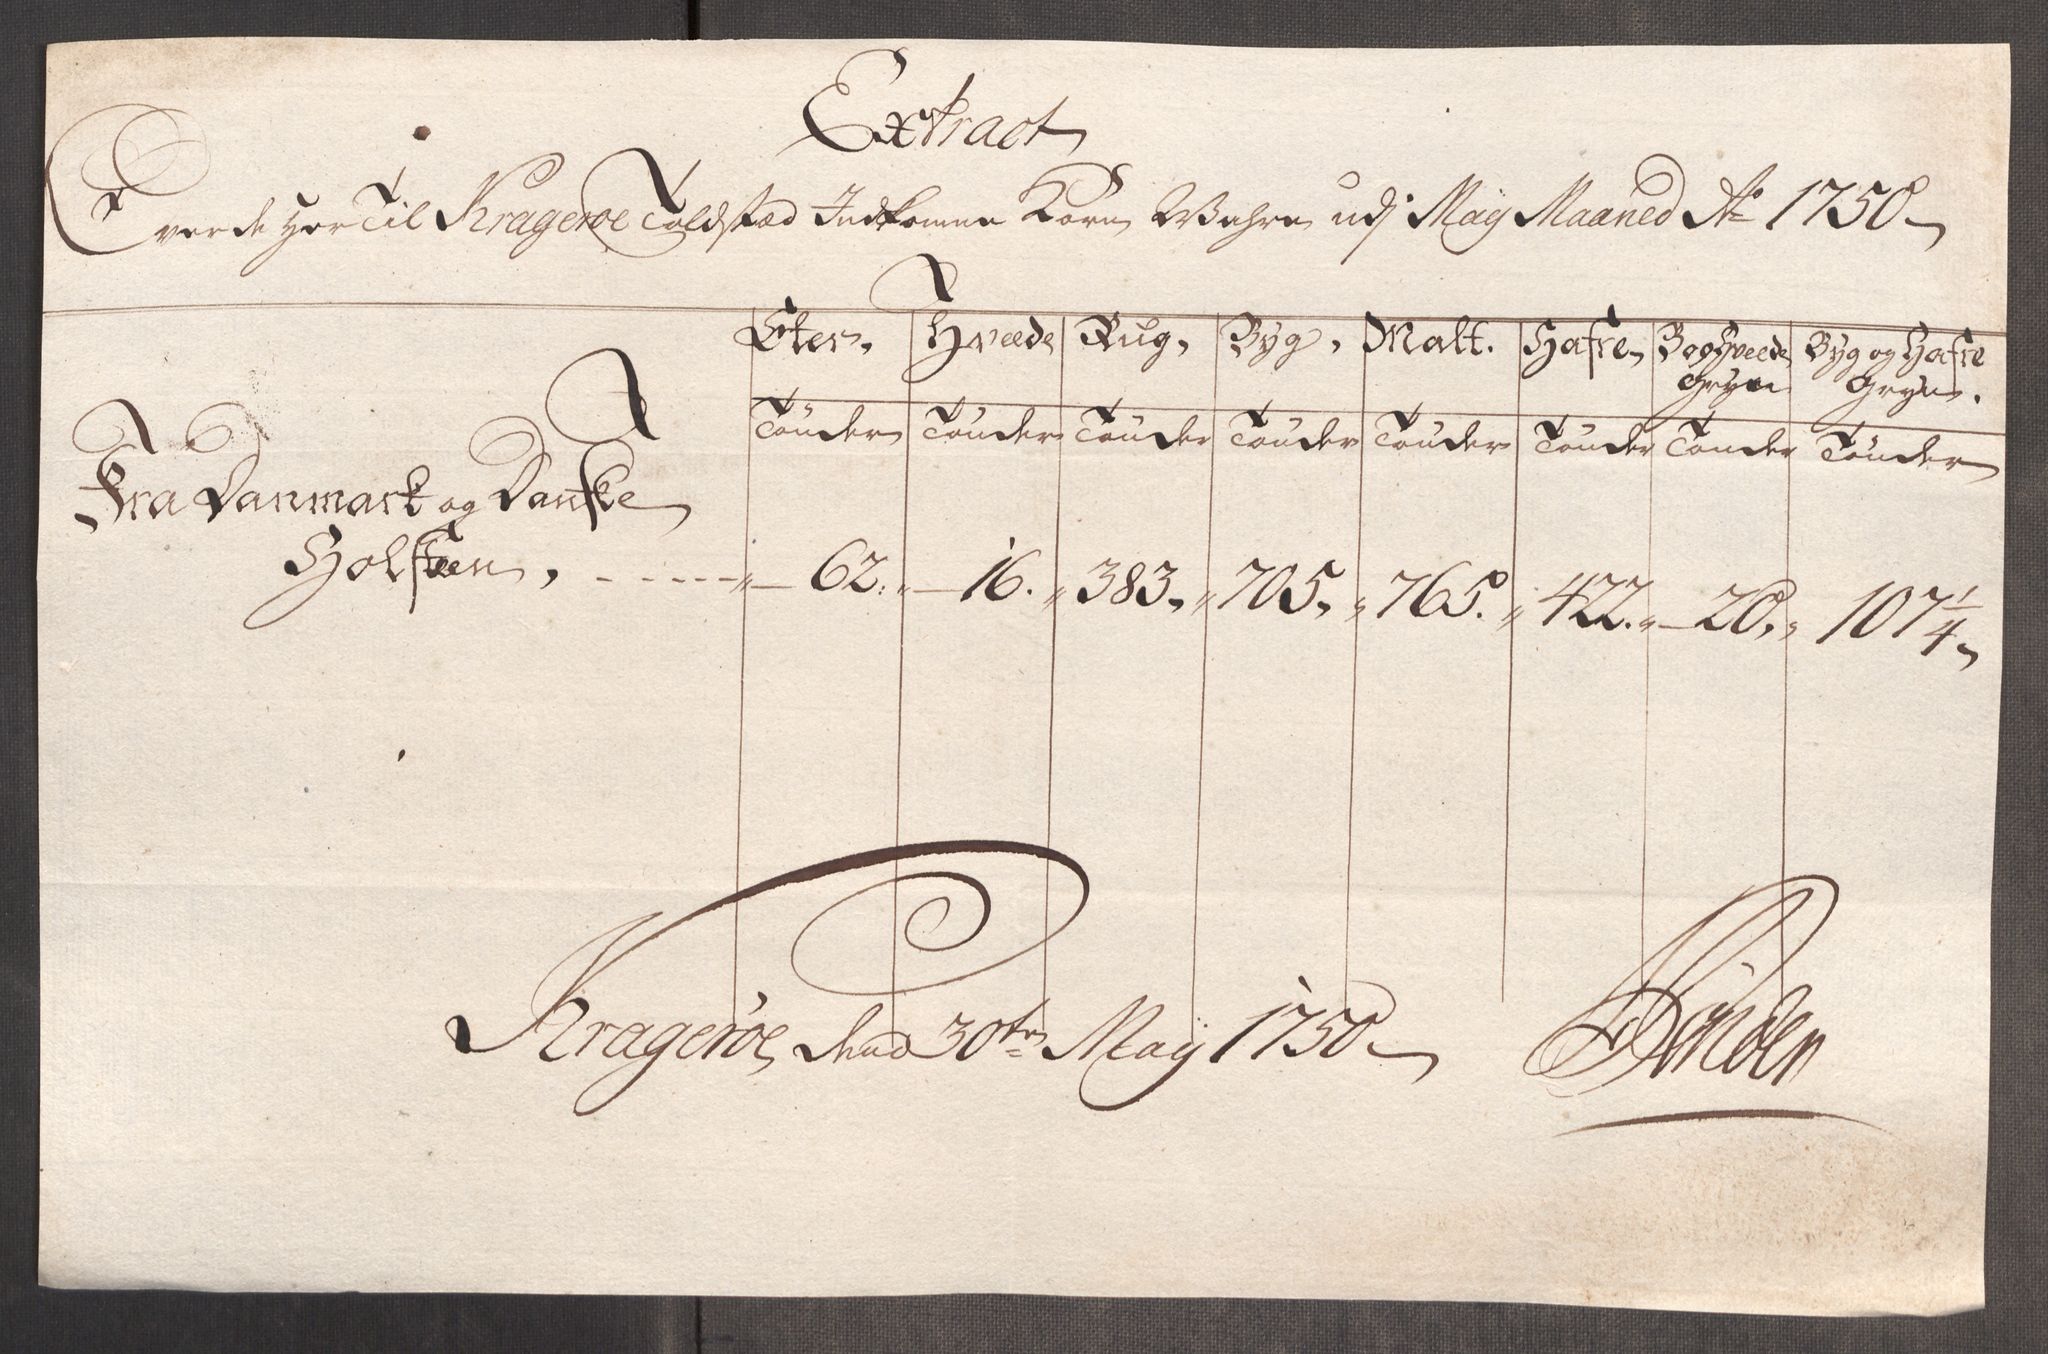 Extract
Over de Her Til Krageröe Toldstæd Indkomne Korn Wahre udj Maÿ Maaned Ao 1750
Erter, Hvede Rug, Byg, Malt. Hafre, Boghvede Gryn Byg og Hafre Gryn.
Tönder Tönder Tönder Tönder Tönder Tönder Tönder Tönder
Fra Danmark og Danske
Holsteen, 62. 16. 383, 705, 765. 422. 20, 107 1/4
Krageröe, dend 30te Maÿ 1750